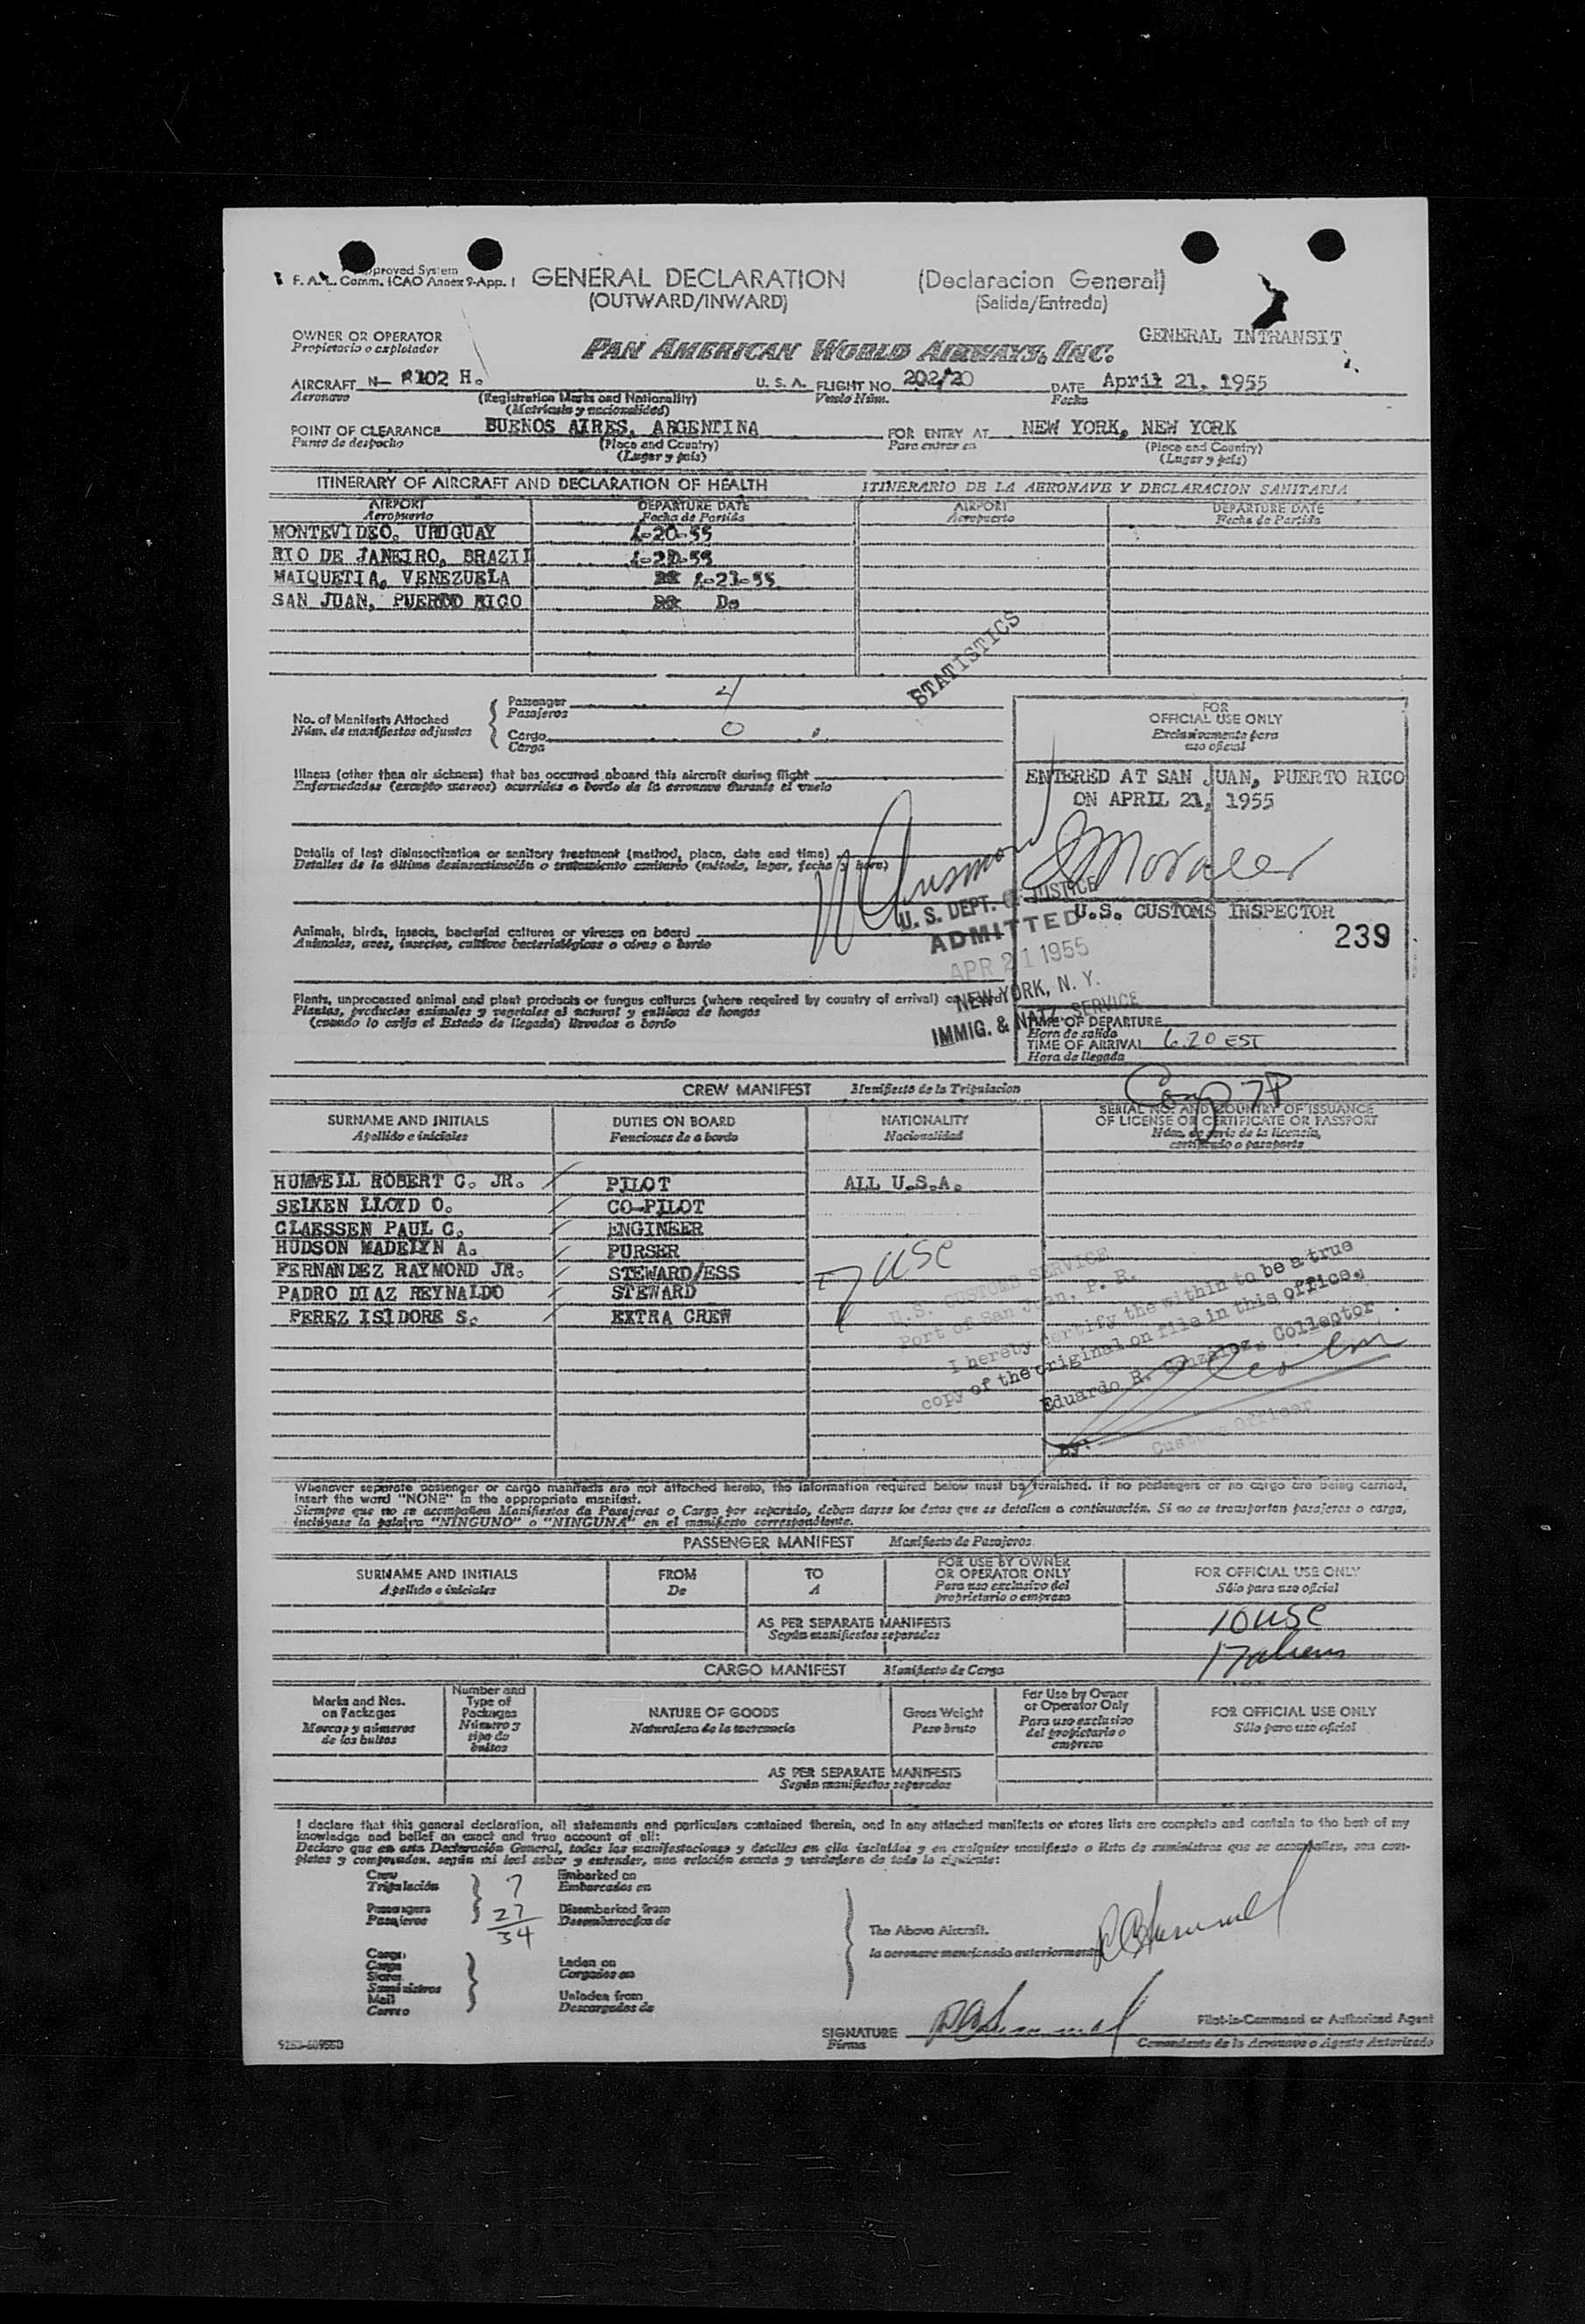 Approved System
F. A. L. Comm. ICAO Annex 9-App. 1
GENERAL DECLARATION (Declaracion General)
(OUTWARD/INWARD) (Salida/Entrada)
OWNER OR OPERATOR
Propietario o explotador
PAN AMERICAN WORLD AIRWAYS, INC.
GENERAL INTRANSIT
AIRCRAFT N- 8102 H. U. S. A. FLIGHT NO. 202/20 DATE April 21, 1955
Aeronave (Registration Marks and Nationality) Vuelo Núm. Fecha
(Matrícula y nacionalidad)
POINT OF CLEARANCE BUENOS AIRES, ARGENTINA FOR ENTRY AT NEW YORK, NEW YORK
Punto de despacho (Place and Country) Para entrar en (Place and Country)
(Lugar y país) (Lugar y país)
ITINERARY OF AIRCRAFT AND DECLARATION OF HEALTH ITINERARIO DE LA AERONAVE Y DECLARACION SANITARIA
AIRPORT DEPARTURE DATE AIRPORT DEPARTURE DATE
Aeropuerto Fecha de Partida Aeropuerto Fecha de Partida
MONTEVIDEO, URUGUAY 4-20-55
RIO DE JANEIRO, BRAZIL
MAIQUETIA, VENEZUELA
SAN JUAN, PUERTO RICO Do
STATISTICS
No. of Manifests Attached
Núm. de manifiestos adjuntos
Passenger 4
Pasajeros
Cargo 0
Carga
FOR
OFFICIAL USE ONLY
Exclusivamente para
uso oficial
Illness (other than air sickness) that has occurred aboard this aircraft during flight
Enfermedades (excepto mareos) ocurridas a bordo de la aeronave durante el vuelo
ENTERED AT SAN JUAN, PUERTO RICO
ON APRIL 21, 1955
Details of last disinsectization or sanitary treatment (method, place, date and time)
Detalles de la última desinsectización o tratamiento sanitario (método, lugar, fecha y hora)
Morales
U.S. CUSTOMS INSPECTOR
239
U. S. DEPT. OF JUSTICE
ADMITTED
APR 21 1955
NEW YORK, N. Y.
IMMIG. & NATZ. SERVICE
Animals, birds, insects, bacterial cultures or viruses on board
Animales, aves, insectos, cultivos bacteriológicos o virus a bordo
Plants, unprocessed animal and plant products or fungus cultures (where required by country of arrival) on board
Plantas, productos animales y vegetales al natural y cultivos de hongos
(cuando lo exija el Estado de llegada) llevados a bordo
TIME OF DEPARTURE
Hora de salida
TIME OF ARRIVAL 6.20 EST
Hora de llegada
CREW MANIFEST Manifiesto de la Tripulacion
SURNAME AND INITIALS DUTIES ON BOARD NATIONALITY SERIAL NO. AND COUNTRY OF ISSUANCE
OF LICENSE OR CERTIFICATE OR PASSPORT
Apellido e iniciales Funciones de a bordo Nacionalidad Núm. de serie de la licencia,
certificado o pasaporte
HUMMELL ROBERT C. JR. PILOT ALL U.S.A.
SEIKEN LLOYD O. CO-PILOT
CLAESSEN PAUL C. ENGINEER
HUDSON MADELYN A. PURSER
FERNANDEZ RAYMOND JR. STEWARD/ESS
PADRO DIAZ REYNALDO STEWARD
PEREZ ISIDORE S. EXTRA CREW
7 USC
U.S. CUSTOMS SERVICE
Port of San Juan, P. R.
I hereby certify the within to be a true
copy of the original on file in this office.
Eduardo R. Gonzalez, Collector
By:
Customs Officer
Whenever separate passenger or cargo manifests are not attached hereto, the information required below must be furnished. If no passengers or no cargo are being carried,
insert the word "NONE" in the appropriate manifest.
Siempre que no se acompañen Manifiestos de Pasajeros o Carga por separado, deben darse los datos que se detallan a continuación. Si no se transportan pasajeros o carga,
inclúyase la palabra "NINGUNO" o "NINGUNA" en el manifiesto correspondiente.
PASSENGER MANIFEST Manifiesto de Pasajeros
SURNAME AND INITIALS FROM TO FOR USE BY OWNER
OR OPERATOR ONLY FOR OFFICIAL USE ONLY
Apellido e iniciales De A Para uso exclusivo del
propietario o empresa Sólo para uso oficial
AS PER SEPARATE MANIFESTS
Según manifiestos separados
10 USC
17 aliens
CARGO MANIFEST Manifiesto de Carga
Marks and Nos.
on Packages
Marcas y números
de los bultos
Number and
Type of
Packages
Número y
tipo de
bultos
NATURE OF GOODS
Naturaleza de la mercancía
Gross Weight
Peso bruto
For Use by Owner
or Operator Only
Para uso exclusivo
del propietario o
empresa
FOR OFFICIAL USE ONLY
Sólo para uso oficial
AS PER SEPARATE MANIFESTS
Según manifiestos separados
I declare that this general declaration, all statements and particulars contained therein, and in any attached manifests or stores lists are complete and contain to the best of my
knowledge and belief an exact and true account of all:
Declaro que en esta Declaración General, todas las manifestaciones y detalles en ella incluidos y en cualquier manifiesto o lista de suministros que se acompañen, son com-
pletos y comprenden, según mi leal saber y entender, una relación exacta y verdadera de todo lo siguiente:
Crew 7 Embarked on
Tripulación Embarcados en
Passengers 27 Disembarked from
Pasajeros 34 Desembarcados de
The Above Aircraft.
la aeronave mencionada anteriormente
Cargo
Carga
Stores
Suministros
Mail
Correo
Laden on
Cargados en
Unladen from
Descargados de
SIGNATURE
Firma
Pilot-in-Command or Authorized Agent
Comandante de la Aeronave o Agente Autorizado